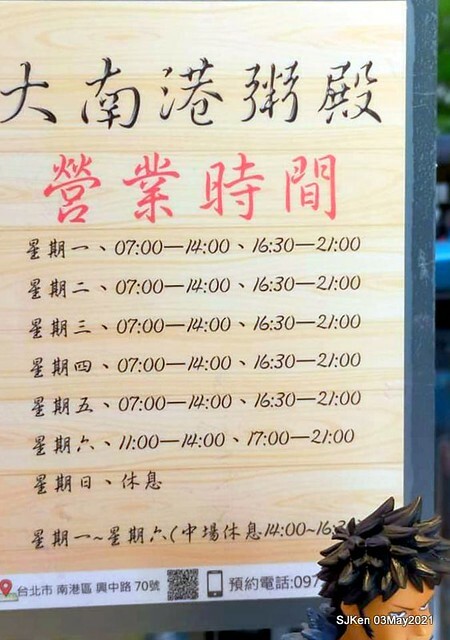 大南港粥殿
營業時間
星期一、07:00—14:00、16:30—21:00
星期二、07:00—14:00、16:30—21:00
星期三、07:00—14:00、16:30—21:00
星期四、07:00—14:00、16:30—21:00
星期五、07:00—14:00、16:30—21:00
星期六、11:00—14:00、17:00—21:00
星期日、休息
星期一~星期六(中場休息14:00~16:3
台北市 南港區 興中路 70號 預約電話:097
SJKen 03May2021